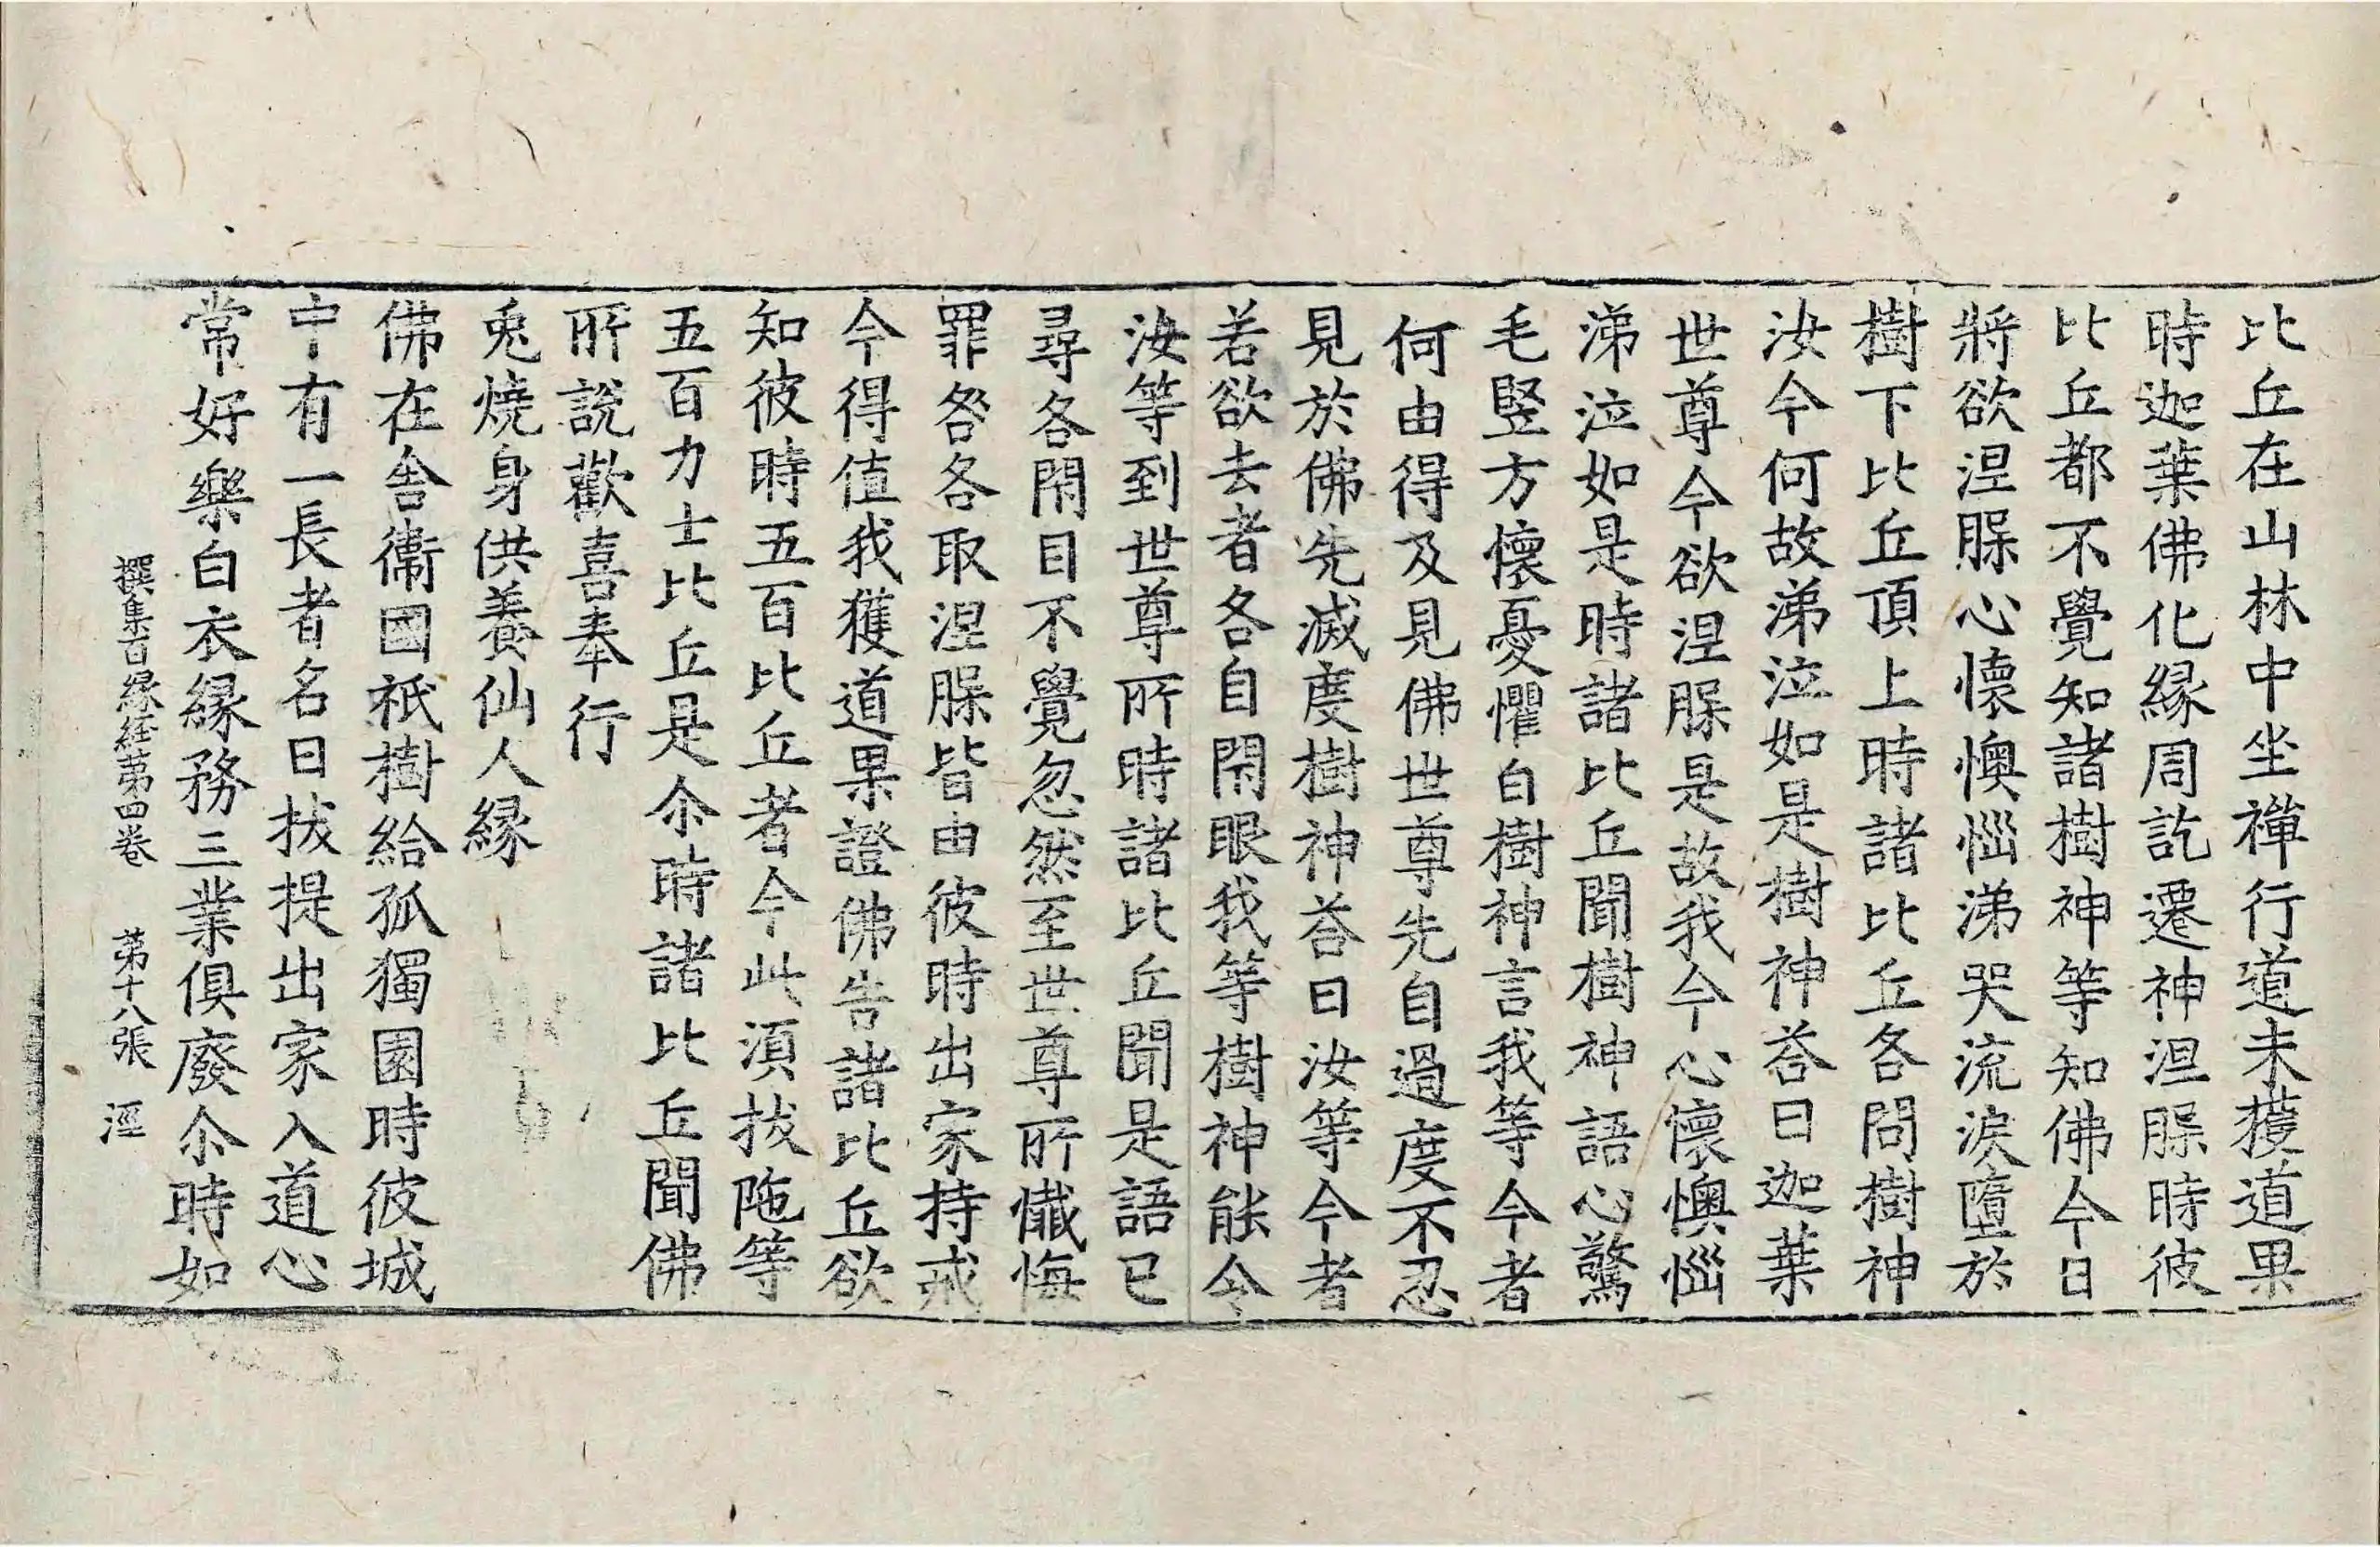 比丘在山林中坐禪行道未獲道果
時迦葉佛化緣周訖遷神涅脲時彼
比丘都不覺知諸樹神等知佛今日
將欲涅脲心懷懊惱涕哭流淚墮於
樹下比丘頂上時諸比丘各問樹神
汝今何故涕泣如是樹神荅曰迦葉
世尊今欲涅脲是故我今心懷懊惱
涕泣如是時諸比丘聞樹神語心驚
毛竪方懷憂懼白樹神言我等今者
何由得及見佛世尊先自過度不忍
見於佛先滅度樹神荅曰汝等今者
若欲去者各自閇眼我等樹神能令
汝等到世尊所時諸比丘聞是語已
尋各閇目不覺忽然至世尊所懺悔
罪咎各取涅脲皆由彼時出家持戒
今得值我獲道果證佛告諸比丘欲
知彼時五百比丘者今此湏拔陁等
五百力士比丘是尒時諸比丘聞佛
所說歡喜奉行
兎燒身供養仙人緣
佛在舍衛國祇樹給孤獨園時彼城
中有一長者名曰拔提出家入道心
常好樂白衣緣務三業俱廢尒時如
撰集百緣経苐四卷 苐十八張 涇